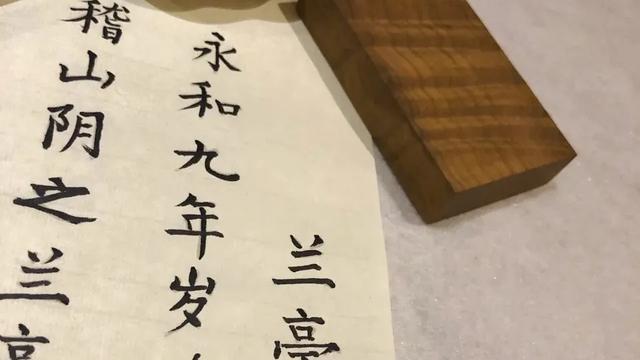 兰亭
永和九年岁
稽山阴之兰亭